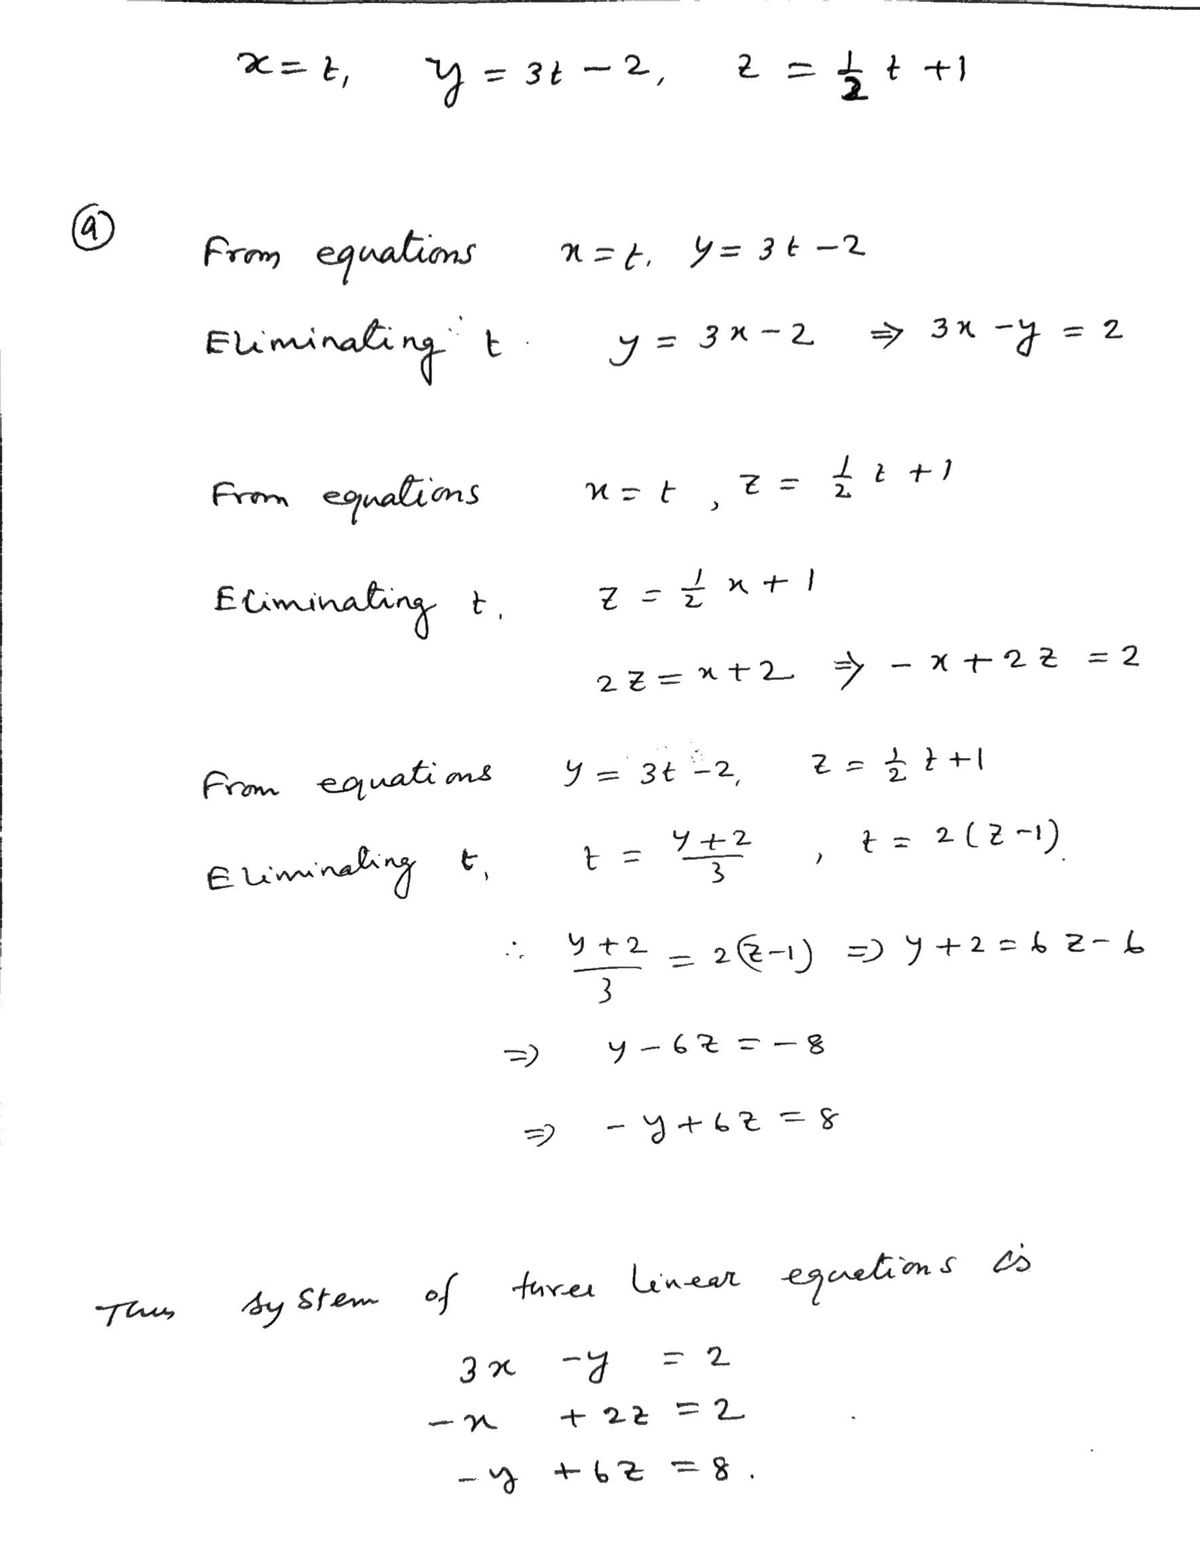 x = t, y = 3t - 2, z = 1/2 t + 1
(a) From equations x = t, y = 3t - 2
Eliminating t. y = 3x - 2 ⇒ 3x - y = 2
From equations x = t, z = 1/2 t + 1
Eliminating t, z = 1/2 x + 1
2z = x + 2 ⇒ -x + 2z = 2
From equations y = 3t - 2, z = 1/2 t + 1
Eliminating t, t = (y + 2)/3, t = 2(z - 1).
∴ (y + 2)/3 = 2(z - 1) ⇒ y + 2 = 6z - 6
⇒ y - 6z = -8
⇒ -y + 6z = 8
Thus system of three linear equations is
3x - y = 2
-x + 2z = 2
-y + 6z = 8.